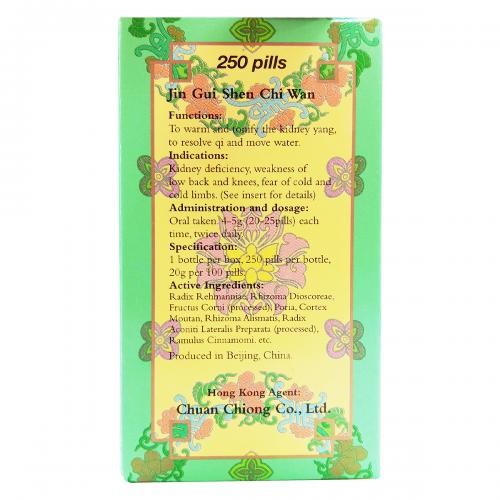 250 pills
Jin Gui Shen Chi Wan
Functions:
To warm and tonify the kidney yang,
to resolve qi and move water.
Indications:
Kidney deficiency, weakness of
low back and knees, fear of cold and
cold limbs. (See insert for details)
Administration and dosage:
Oral taken. 4-5g (20-25pills) each
time, twice daily
Specification:
1 bottle per box, 250 pills per bottle,
20g per 100 pills.
Active Ingredients:
Radix Rehmanniae, Rhizoma Dioscoreae,
Fructus Corni (processed), Poria, Cortex
Moutan, Rhizoma Alismatis, Radix
Aconiti Lateralis Preparata (processed),
Ramulus Cinnamomi. etc.
Produced in Beijing, China.
Hong Kong Agent:
Chuan Chiong Co., Ltd.